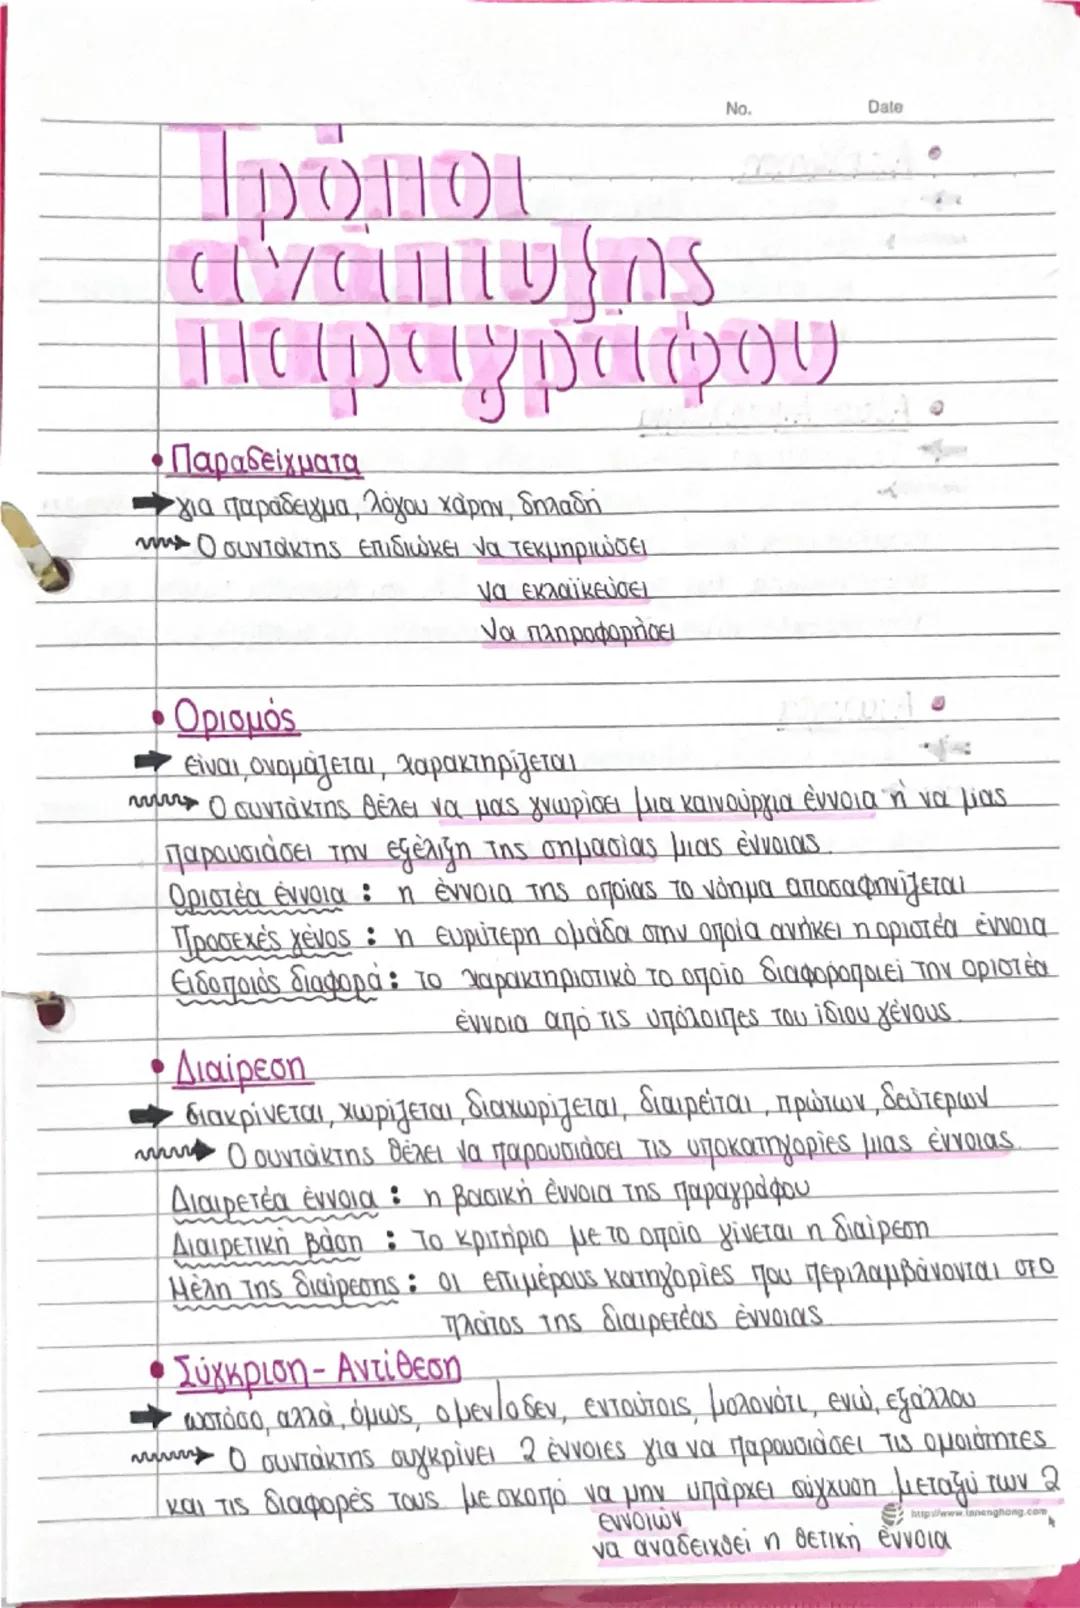 No. Date
Τρόποι
ανάπτυξης
παραγράφου
• Παραδείγματα
➡ για παράδειγμα, λόγου χάρην, δηλαδή
Ο συντάκτης επιδιώκει να τεκμηριώσει
να εκλαϊκεύσει
να πληροφορήσει
• Ορισμός
➡ είναι, ονομάζεται, χαρακτηρίζεται
Ο συντάκτης θέλει να μας γνωρίσει μια καινούργια έννοια ή να μας
παρουσιάσει την εξέλιξη της σημασίας μιας έννοιας.
Οριστέα έννοια : η έννοια της οποίας το νόημα αποσαφηνίζεται
Προσεχές γένος : η ευρύτερη ομάδα στην οποία ανήκει η οριστέα έννοια
Ειδοποιός διαφορά : το χαρακτηριστικό το οποίο διαφοροποιεί την οριστέα
έννοια από τις υπόλοιπες του ίδιου γένους.
• Διαίρεση
➡ διακρίνεται, χωρίζεται, διαχωρίζεται, διαιρείται, πρώτων, δεύτερων
Ο συντάκτης θέλει να παρουσιάσει τις υποκατηγορίες μιας έννοιας.
Διαιρετέα έννοια : η βασική έννοια της παραγράφου
Διαιρετική βάση : το κριτήριο με το οποίο γίνεται η διαίρεση
Μέλη της διαίρεσης : οι επιμέρους κατηγορίες που περιλαμβάνονται στο
πλάτος της διαιρετέας έννοιας.
• Σύγκριση - Αντίθεση
➡ ωστόσο, αλλά, όμως, ο μεν/ο δεν, εντούτοις, μολονότι, ενώ, εξάλλου
Ο συντάκτης συγκρίνει 2 έννοιες για να παρουσιάσει τις ομοιότητες
και τις διαφορές τους με σκοπό να μην υπάρχει σύγχυση μεταξύ των 2
εννοιών
να αναδειχθεί η θετική έννοια